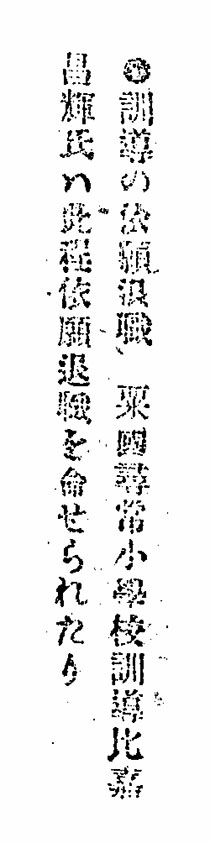 ◉訓導の依願退職　粟國尋常小學校訓導比嘉
昌輝氏ハ此程依願退職を命せられたり